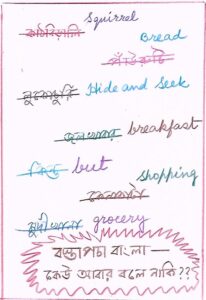 কাঠবিড়ালি Squirrel
Bread
পাঁউরুটি
লুকোচুরি Hide and Seek
জলখাবার breakfast
কিন্তু but
shopping
কেনাকাটা
মুদীখানা grocery
বস্তাপচা বাংলা —
কেউ আবার বলে নাকি??